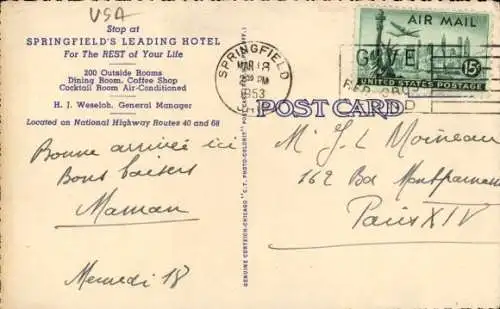 USA
Stop at
SPRINGFIELD'S LEADING HOTEL
For The REST of Your Life
200 Outside Rooms
Dining Room, Coffee Shop
Cocktail Room Air-Conditioned
H. J. Weseloh, General Manager
Located on National Highway Routes 40 and 68
Bonne arrivée ici
Bons baisers
Maman
Mercredi 18
GENUINE CURTEICH-CHICAGO "C.T. PHOTO-COLORIT" POST CARD
SPRINGFIELD
MAR 18
PM
1953
AIR MAIL
GIVE
RED CROSS
UNITED STATES POSTAGE
15¢
POST CARD
M. J L Moineau
162 Bd Montparnasse
Paris XIV